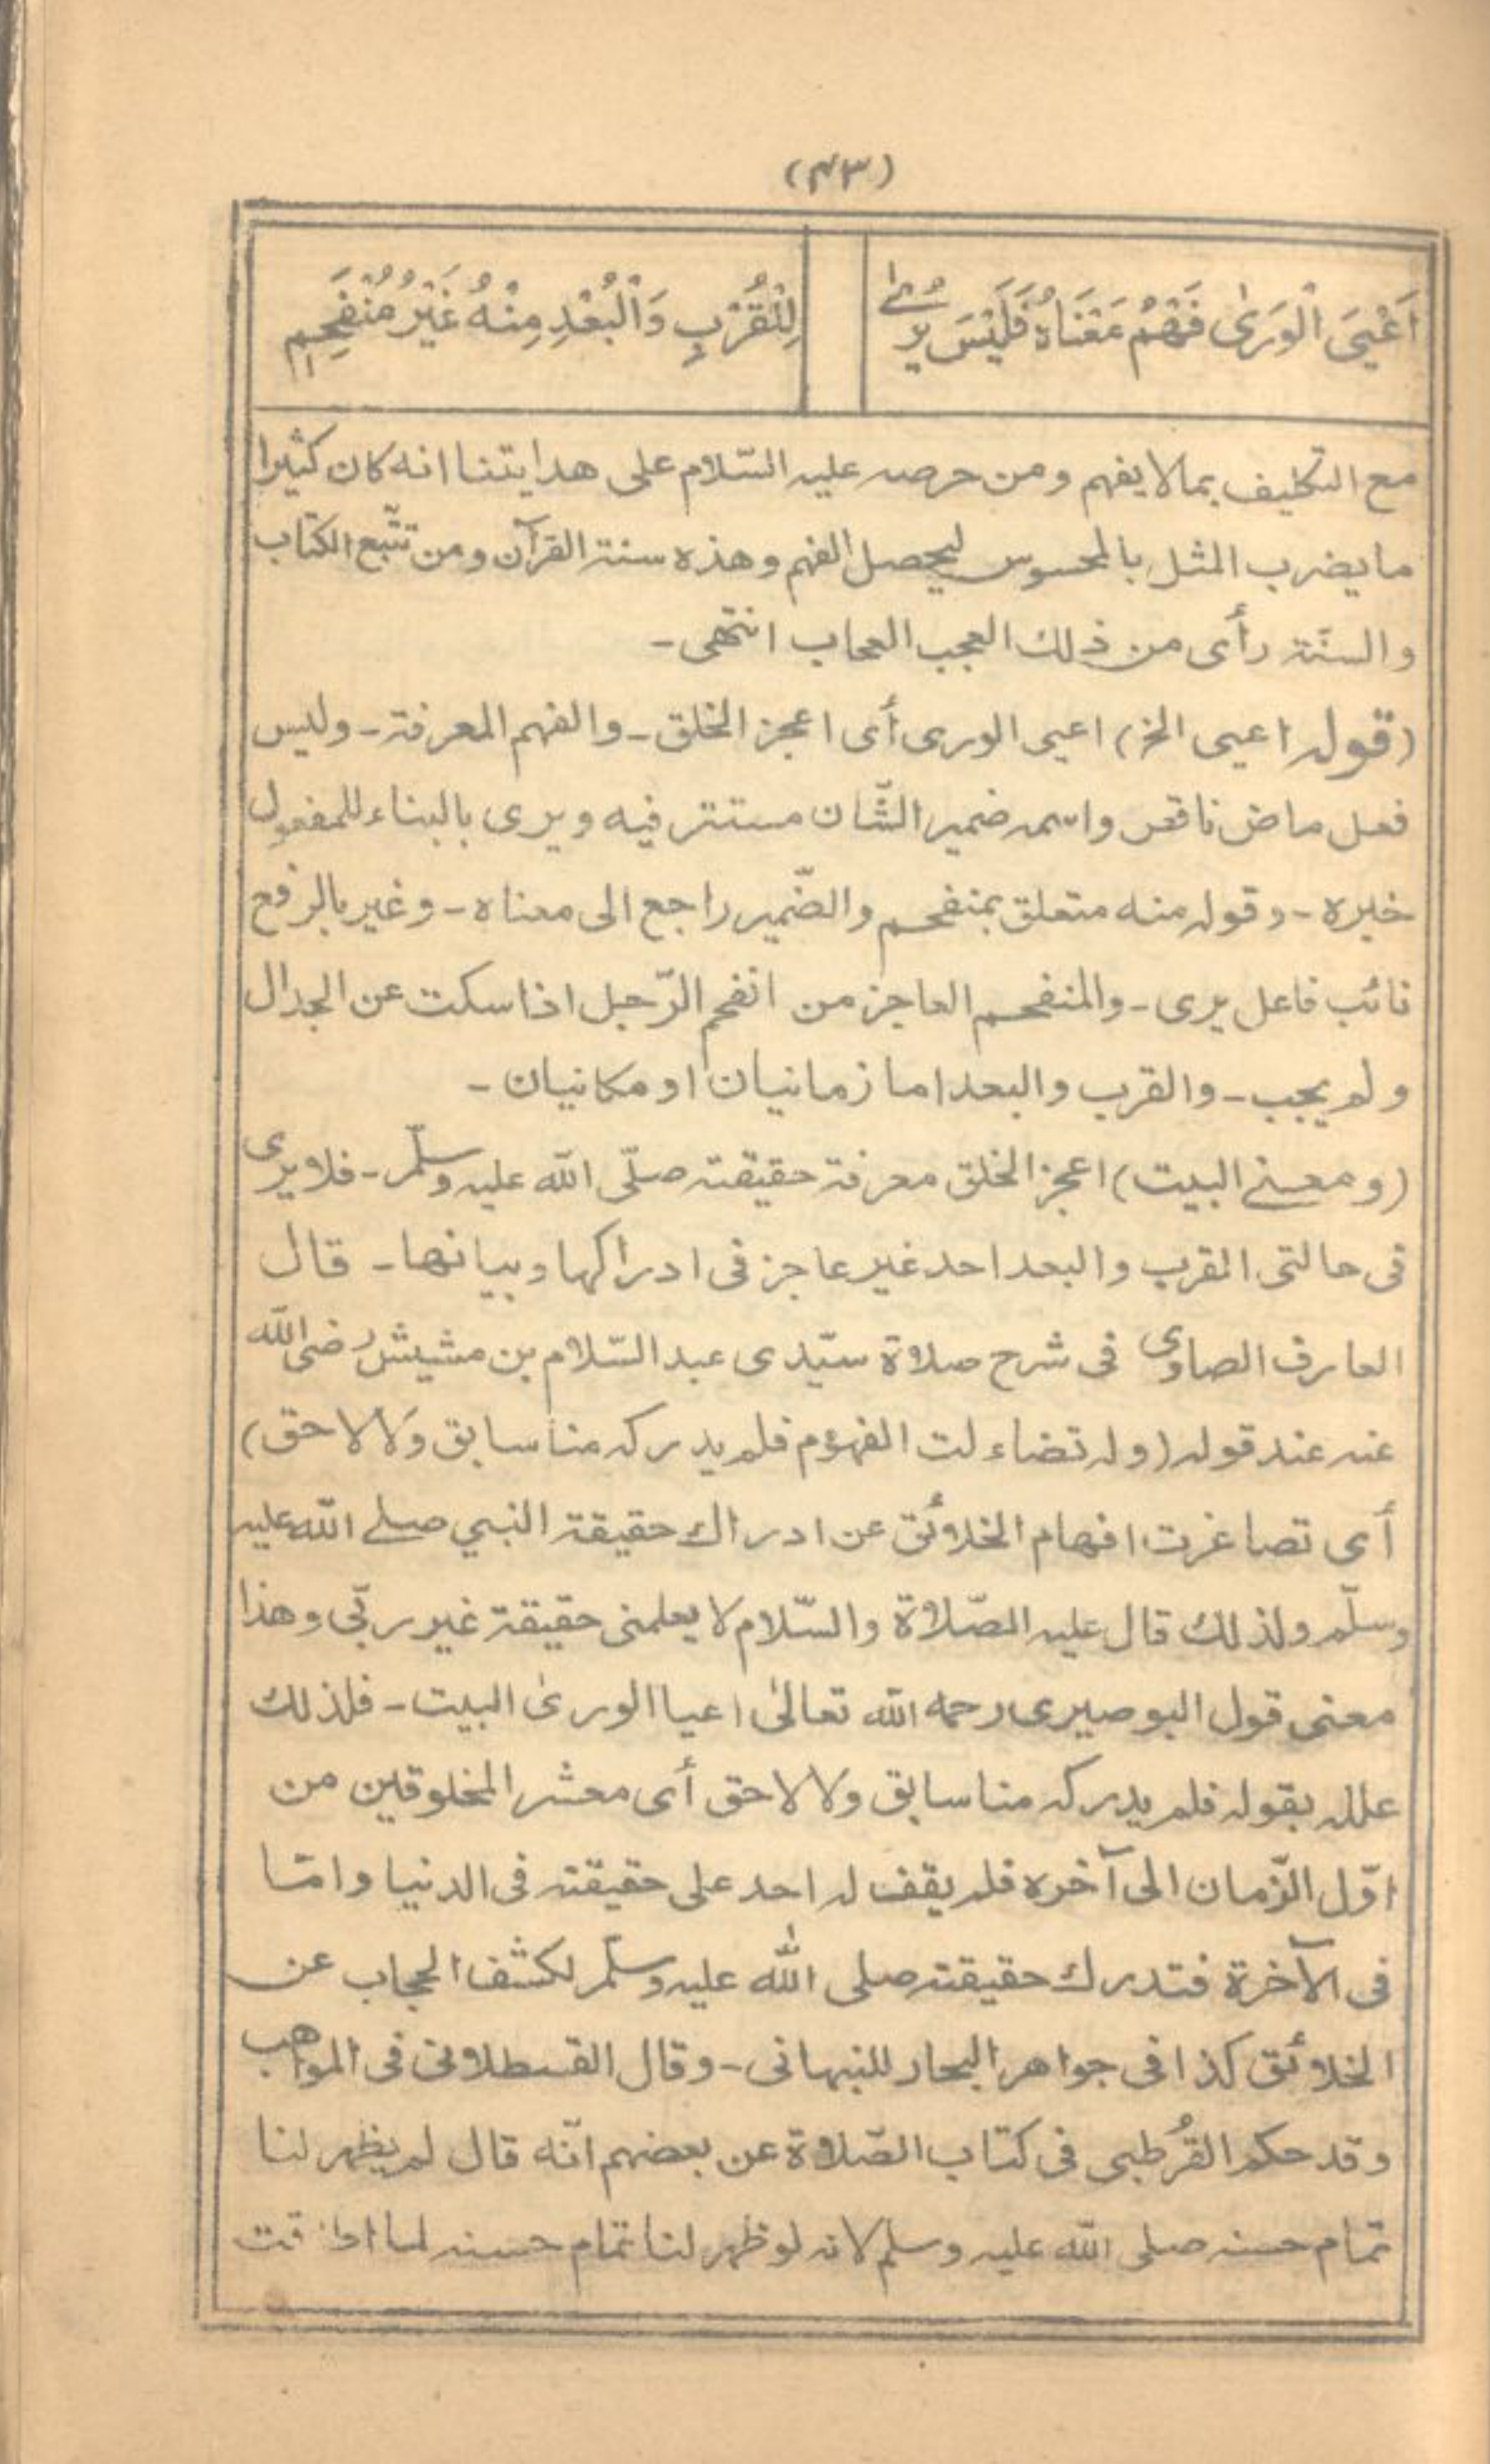 (۴۳)
اَعْيَى الْوَرىٰ فَهْمُ مَعْنَاهُ فَلَيْسَ يُرٰى لِلْقُرْبِ وَالْبُعْدِ مِنْهُ غَيْرُ مُنْفَحِمِ
مع التكليف بمالا يفهم ومن حرصه عليه السّلام على هدايتنا انه كان كثيرا
ما يضرب المثل بالمحسوس ليحصل الفهم وهذه سنة القرآن ومن تتّبع الكتاب
والسنّة رأى من ذلك العجب العجاب انتهى-
(قوله اعيى الخ) اعيى الورى أى اعجز الخلق- والفهم المعرفة- وليس
فعل ماض ناقص واسمه ضمير الشّان مستتر فيه ويرى بالبناء للمفعول
خبره- وقوله منه متعلق بمنفحم والضّمير راجع الى معناه- وغير بالرفع
نائب فاعل يرى- والمنفحم العاجز من انفحم الرّجل اذا سكت عن الجدال
ولم يجب- والقرب والبعد اما زمانيان او مكانيان-
(ومعنے البيت) اعجز الخلق معرفة حقيقته صلّى الله عليه وسلّم- فلا يرى
فى حالتى القرب والبعد احد غير عاجز فى ادراكها وبيانها- قال
العارف الصاوى فى شرح صلاة سيّدى عبد السّلام بن مشيش رضى الله
عنه عند قوله (وله تضاءلت الفهوم فلم يدركه منا سابق وَلا لاحق)
أى تصاغرت افهام الخلائق عن ادراك حقيقة النبي صلے الله عليه
وسلّم ولذلك قال عليه الصّلاة والسّلام لا يعلمنى حقيقة غير ربّى وهذا
معنى قول البوصيرى رحمه الله تعالىٰ اعيا الورىٰ البيت- فلذلك
علله بقوله فلم يدركه منا سابق ولا لاحق أى معشر المخلوقين من
اوّل الزّمان الى آخره فلم يقف له احد على حقيقته فى الدنيا وامّا
فى الآخرة فتدرك حقيقته صلى الله عليه وسلّم لكشف الحجاب عن
الخلائق كذا فى جواهر البحار للنبهانى- وقال القسطلانى فى المواهب
وقد حكم القُرطبى فى كتاب الصّلاة عن بعضهم انّه قال لم يظهر لنا
تمام حسنه صلى الله عليه وسلم لانه لو ظهر لنا تمام حسنه لما اطاقت